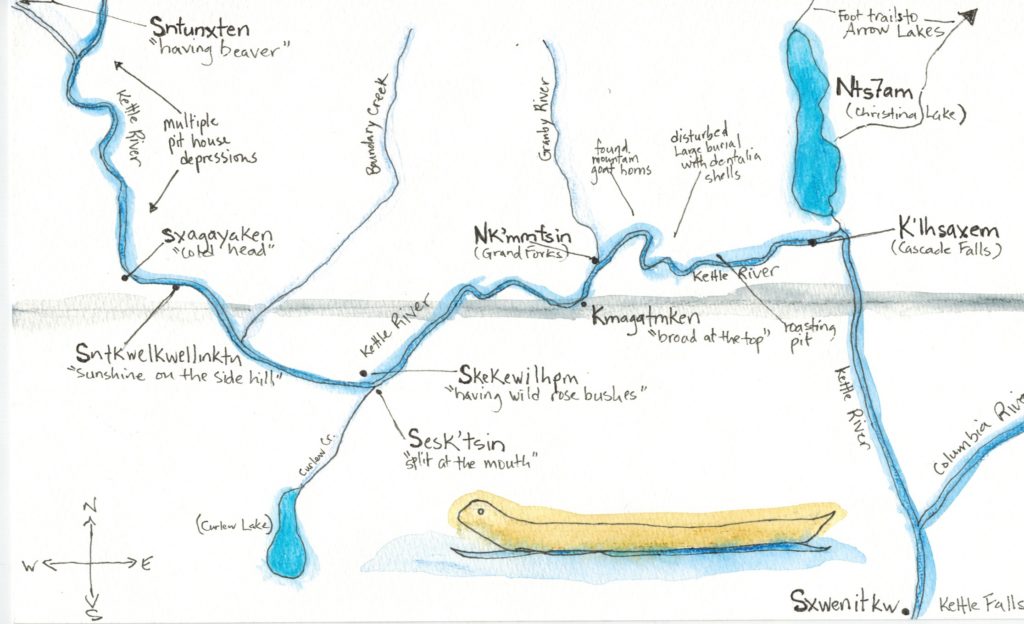 Sntunxten
"having beaver"
Kettle River
multiple
pit house
depressions
Boundary Creek
Granby River
found
mountain
goat horns
disturbed
Large burial
with dentalia
shells
Foot trails to
Arrow Lakes
Nts7am
(Christina Lake)
sxagayaken
"coled head"
Nk'mmtsin
(Grand Forks)
K'lhsaxem
(Cascade Falls)
Kettle River
Kmagatmken
"broad at the top"
roasting
pit
Kettle River
Sntkwelkwellnktn
"sunshine on the side hill"
Skekewilhpm
"having wild rose bushes"
Sesk'tsin
"split at the mouth"
Curlew Cr.
(Curlew Lake)
Kettle River
Columbia River
N
W
E
S
Sxwenitkw
Kettle Falls